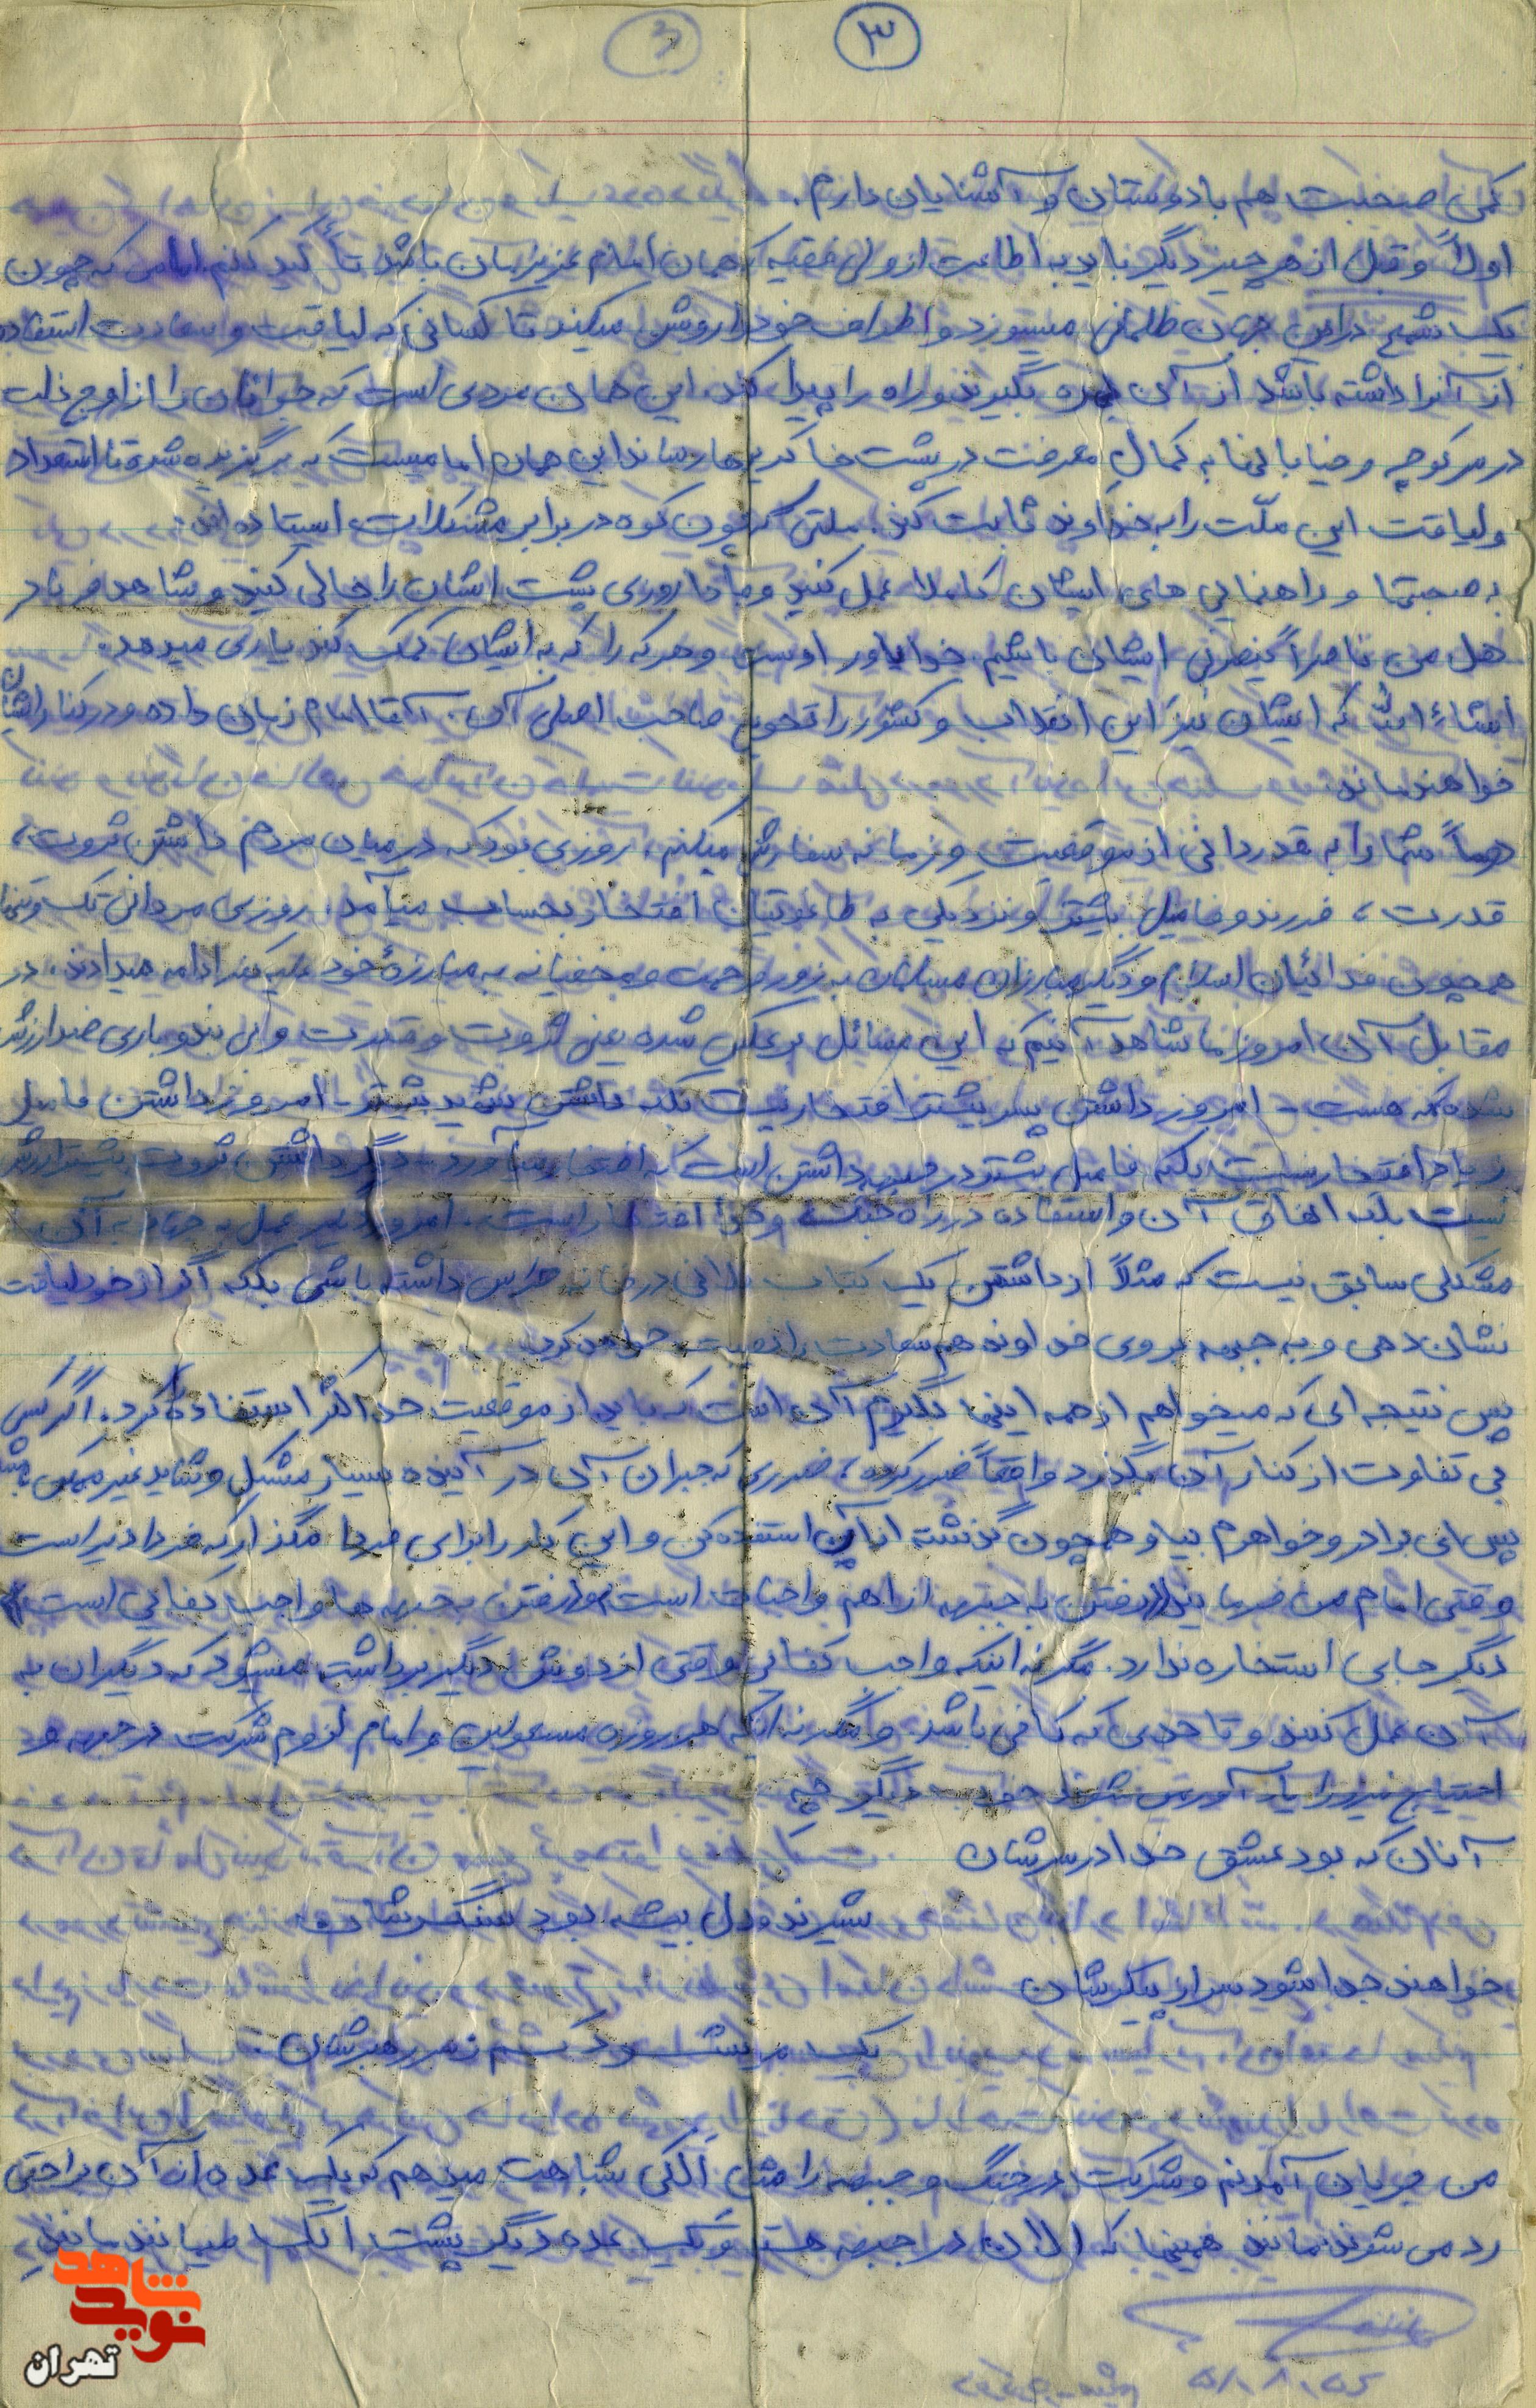 ۳
کمی صحبت هم با دوستان و آشنایان دارم.
اولاً و قبل از هر چیز دیگر باید به اطاعت از ولی فقیه که همان امام عزیزمان باشد تأکید کنم امامی که چون
یک شمع در این جهان ظلمانی میسوزد و اطراف خود را روشن میکند تا کسانی که لیاقت و سعادت استفاده
از آنرا داشته باشد از آن بهره بگیرند و راه را پیدا کند. این همان مردی است که جوانان را از اوج ذلت
در سر کوچه و خیابانها به کمال معرفت در پشت خاکریزها رساند این همان امامیست که برگزیده شده تا استعداد
و لیاقت این ملّت را به خداوند ثابت کند. ملتی که چون کوه در برابر مشکلات ایستاده اند
به صحبتها و راهنمایی های ایشان کاملا عمل کنید و مبادا روزی پشت ایشان را خالی کنید و شاهد فریاد
هل من ناصراً ینصرنی ایشان باشیم خدا یاور اوست و هر که را که به ایشان کمک کند یاری میدهد.
انشاءالله که ایشان نیز این انقلاب و کشور را تحویل صاحب اصلی آن، آقا امام زمان داده و در کنار ایشان
خواهند ماند.
دوماً شما را به قدردانی از موقعیت و زمانه سفارش میکنم، روزی بود که در میان مردم داشتن ثروت،
قدرت، فرزند و فامیل بیشتر و نزدیکی به طاغوتیان افتخار بحساب میآمد. روزی مردانی تک و تنها
همچون فدائیان اسلام و دیگر مبارزان مسلمان به زور و زحمت و مخفیانه به مبارزهٔ خود علیه کفر ادامه میدادند. در
مقابل آن امروز ما شاهد آنیم که این مسائل برعکس شده یعنی ثروت و قدرت و بی بندوباری ضد ارزش
شده که هست - امروز داشتن پسر بیشتر افتخار نیست بلکه داشتن شهید بیشتر - امروز داشتن فامیل
زیاد افتخار نیست بلکه فامیل بیشتر در جبهه داشتن است که افتخار میآورد. دیگر داشتن ثروت بیشتر ارزش
نیست بلکه انفاق آن و استفاده در راه جنگ و خدا افتخار است. امروز دیگر عمل به جهاد به آن
مشکلی سابق نیست که مثلاً از داشتن یک کتاب در خانه هراس داشته باشی بلکه اگر از خود لیاقت
نشان دهی و به جبهه بروی خداوند هم سعادت را نصیبت خواهد کرد.
پس نتیجه ای که میخواهم از همه اینها بگیرم آن است که باید از موقعیت حداکثر استفاده را کرد. اگر کسی
بی تفاوت از کنار آن بگذرد واقعاً ضرر کرده، ضرری که جبران آن در آینده بسیار مشکل و شاید غیر ممکن باشد
پس ای برادر و خواهرم بیا و همچون گذشته از آن استفاده کن و این کار را برای فردا مگذار که فردا دیر است
وقتی امام من فرمایند ((رفتن به جبهه از اهم واجبات است)) و ((رفتن به جبهه ها واجب کفایی است))
دیگر جایی استخاره ندارد. مگر نه اینکه واجب کفایی وقتی از دوش دیگر برداشته میشود که دیگران به
آن عمل کنند و تا حدی که کافی باشد. و مگر نه اینکه هر روزه مسئولین و امام لزوم شرکت در جبهه و
احتیاج نیرو را یادآوری میشوند دیگر چه
آنان که بود عشق خدا در سرشان
شیرند و دل بیشه بود سنگرشان
خواهند جدا شود سر از پیکرشان
یک مو نشود کم ز سر رهبرشان.
من جریان آمدنم و شرکت در جنگ و جبهه را مثل الکی شباهت میدهم که یک عده از آن براحتی
رد می شوند مانند همینها که الان در جبهه هستند و یک عده دیگر پشت الک میمانند مانند
شاهد
نوید
تهران